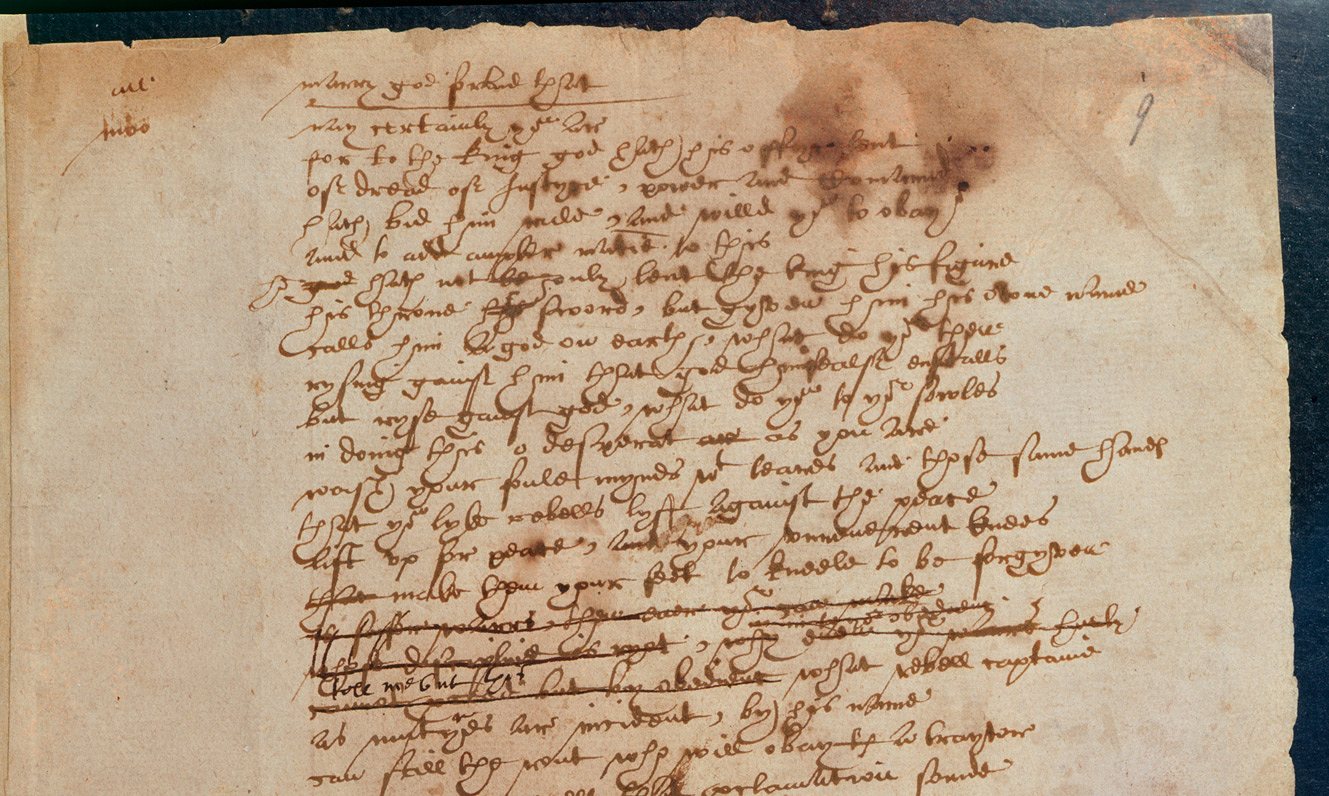 all marry god forbid that
moo nay certainly yoᵘ ar
for to the king god hath his offyc lent
of dread of Iustyce, power and Comaund
hath bid him rule, and willd yoᵘ to obay
and to add ampler matie to this
he god hath not le only lent the king his figure
his throne hys sword, but gyven him his owne name
calls him a god on earth, what do yoᵘ then
rysing gainst him that god himsealf enstalls
but ryse gainst god, what do yoᵘ to yoʳ sowles
in doing this o desperat ar as you are
wash your foule mynds wᵗ teares and those same handes
that yoᵘ lyke rebells lyft against the peace
lift vp for peace, and your vnreuerent knees
that make them your feet to kneele to be forgyven
is safer warrs, then euer yoᵘ can make
in in to yoʳ obedienc
whose discipline is ryot, why euen yoʳ warrs hurly
tell me but this
cannot proceed but by obedienc what rebell captaine
as mutynes ar incident, by his name
can still the rout who will obay th a traytor
well that proclamation sounde
9